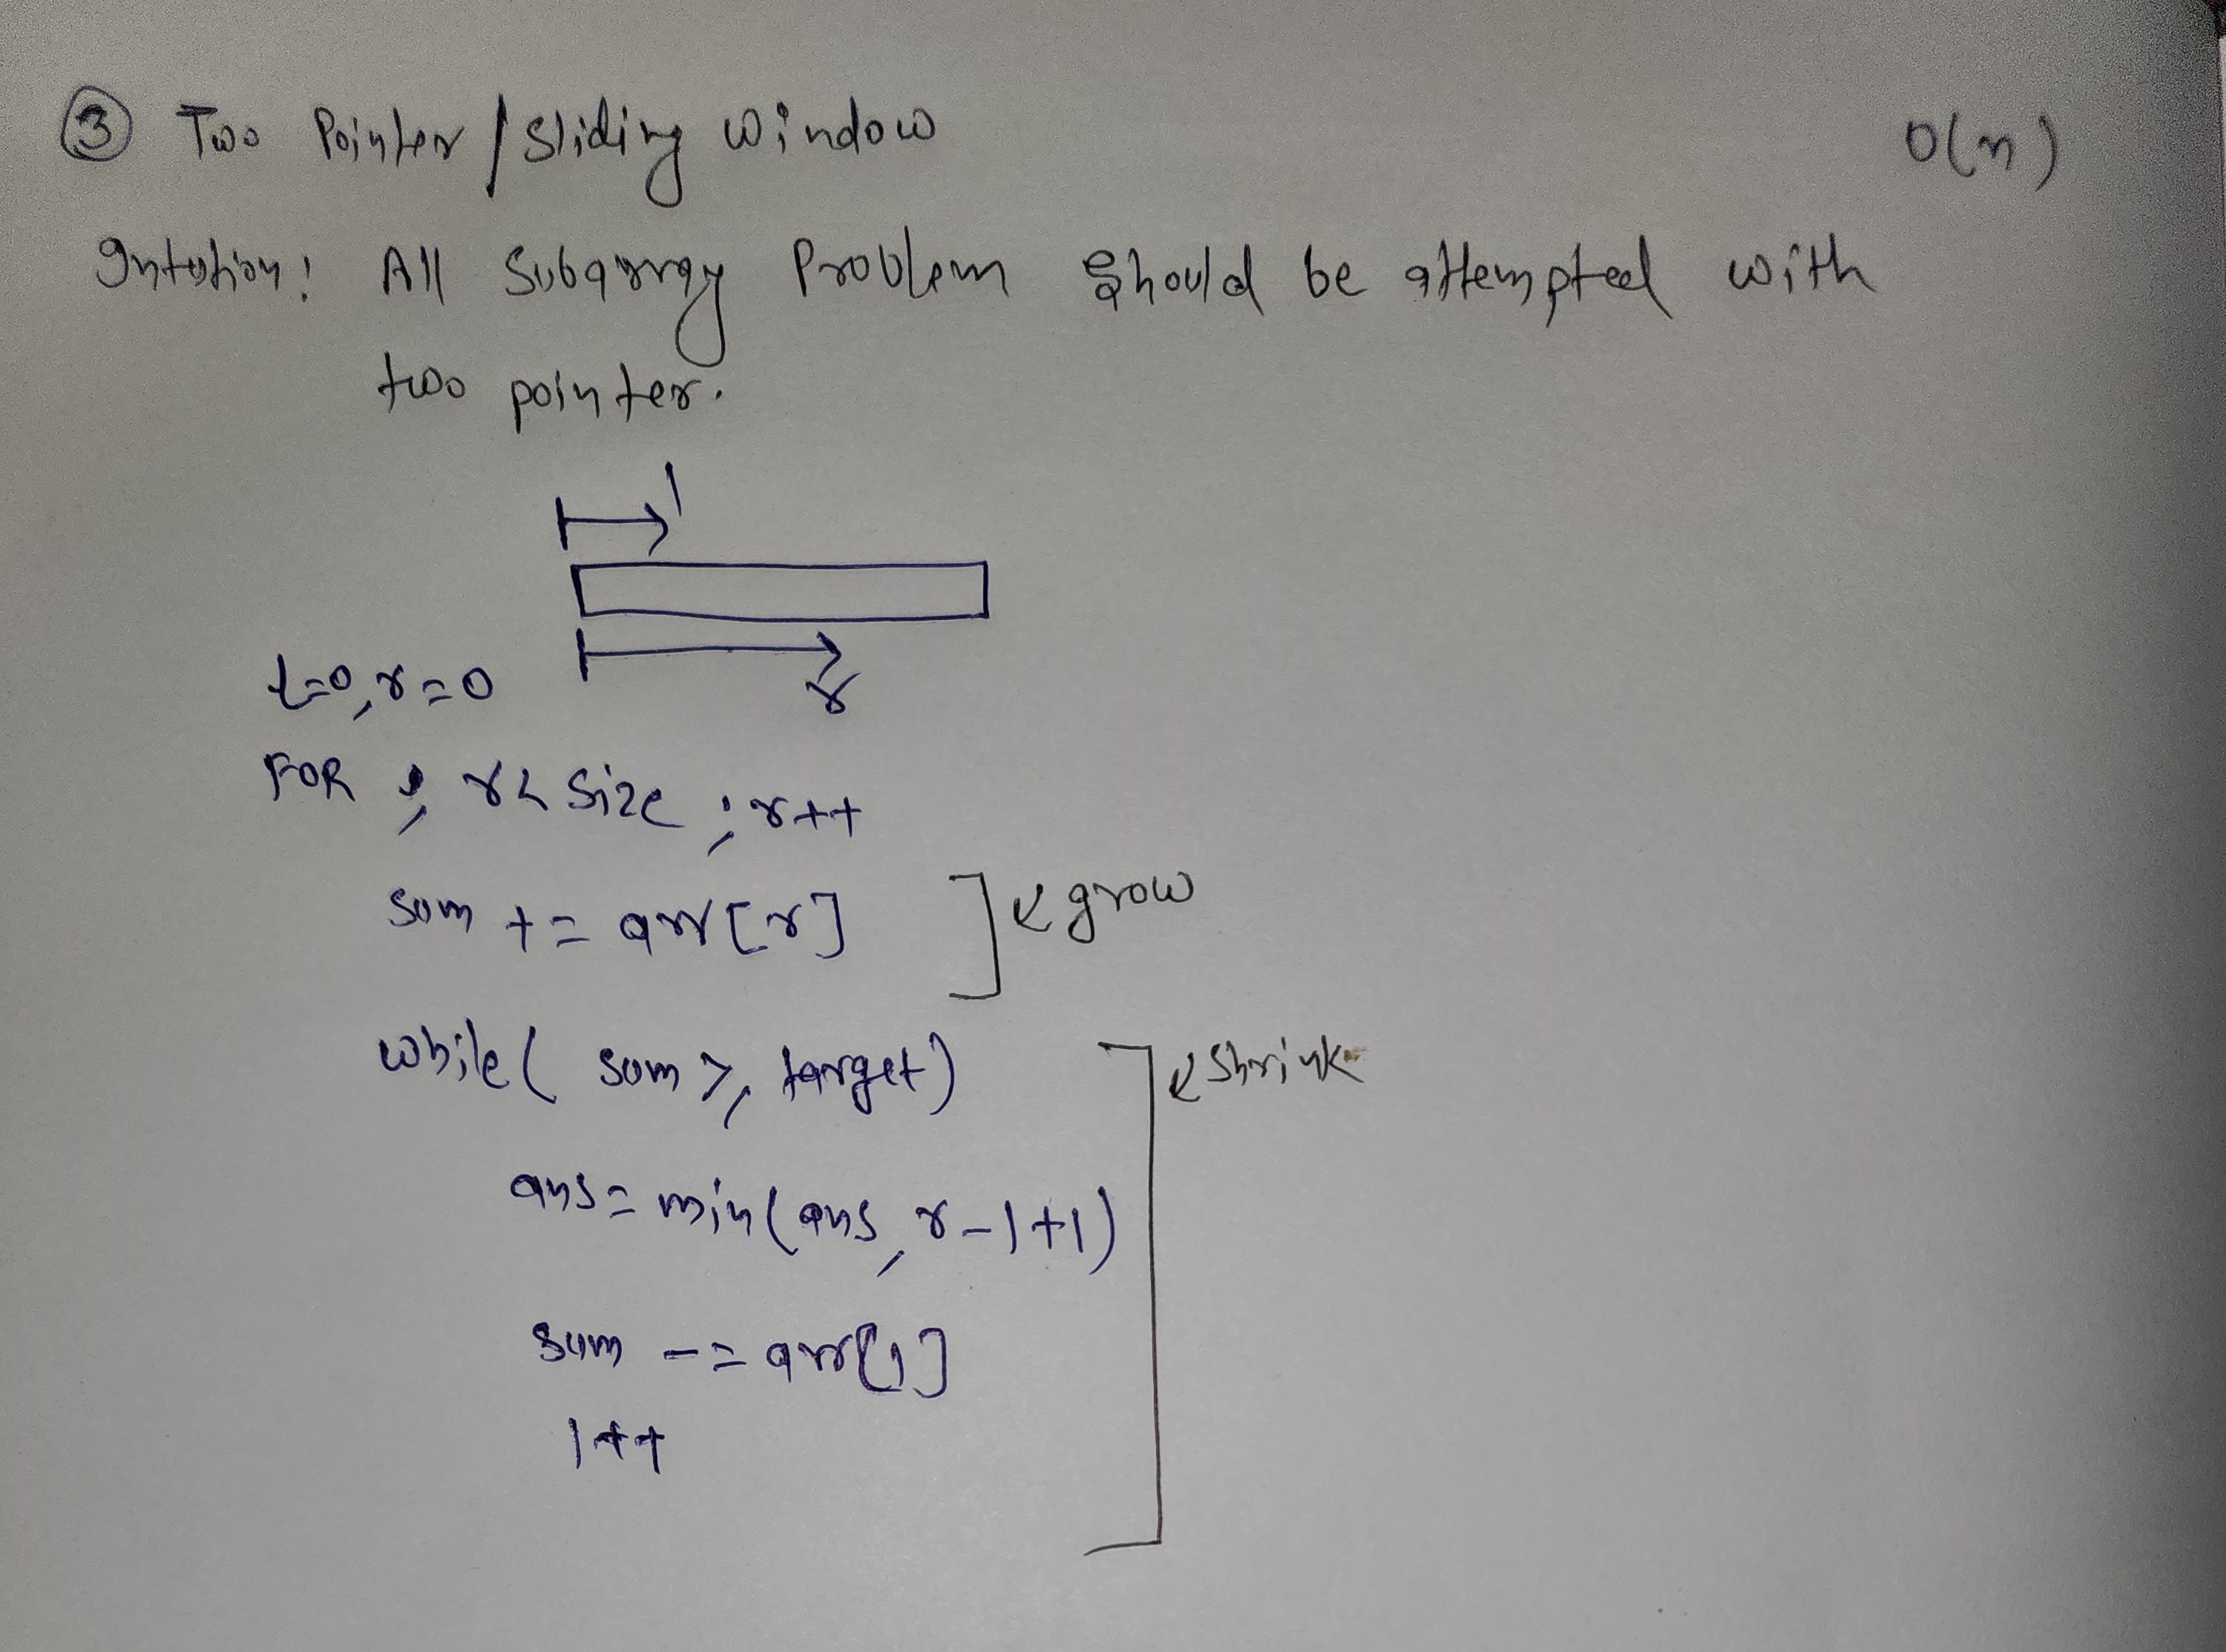 ③ Two Pointer / Sliding window O(n)
Intution: All Subarray Problem should be attempted with
two pointer.
l
r
l=0, r=0
FOR ; r < Size ; r++
sum += arr[r] ← grow
while( sum ≥ target) ← shrink
ans = min(ans, r-l+1)
sum -= arr[l]
l++